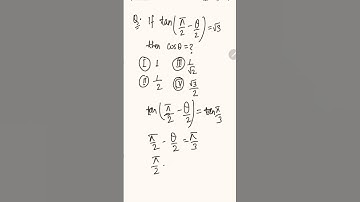 Q: If tan(π/2 - θ/2) = √3
then cosθ = ?
(I) 1 (III) 1/√2
(II) 1/2 (IV) √3/2
tan(π/2 - θ/2) = tan π/3
π/2 - θ/2 = π/3
π/2 -